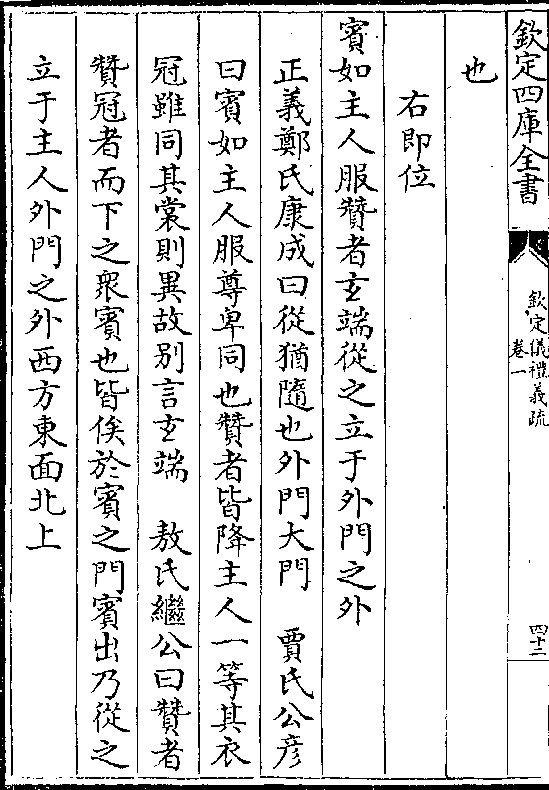 欽定四庫全書
欽定儀禮義疏
卷一
四十二
也
右即位
賓如主人服贊者玄端從之立于外門之外
正義鄭氏康成曰從猶隨也外門大門　賈氏公彦
曰賓如主人服尊卑同也贊者皆降主人一等其衣
冠雖同其裳則異故别言玄端　敖氏繼公曰贊者
贊冠者而下之衆賓也皆俟於賓之門賓出乃從之
立于主人外門之外西方東面北上